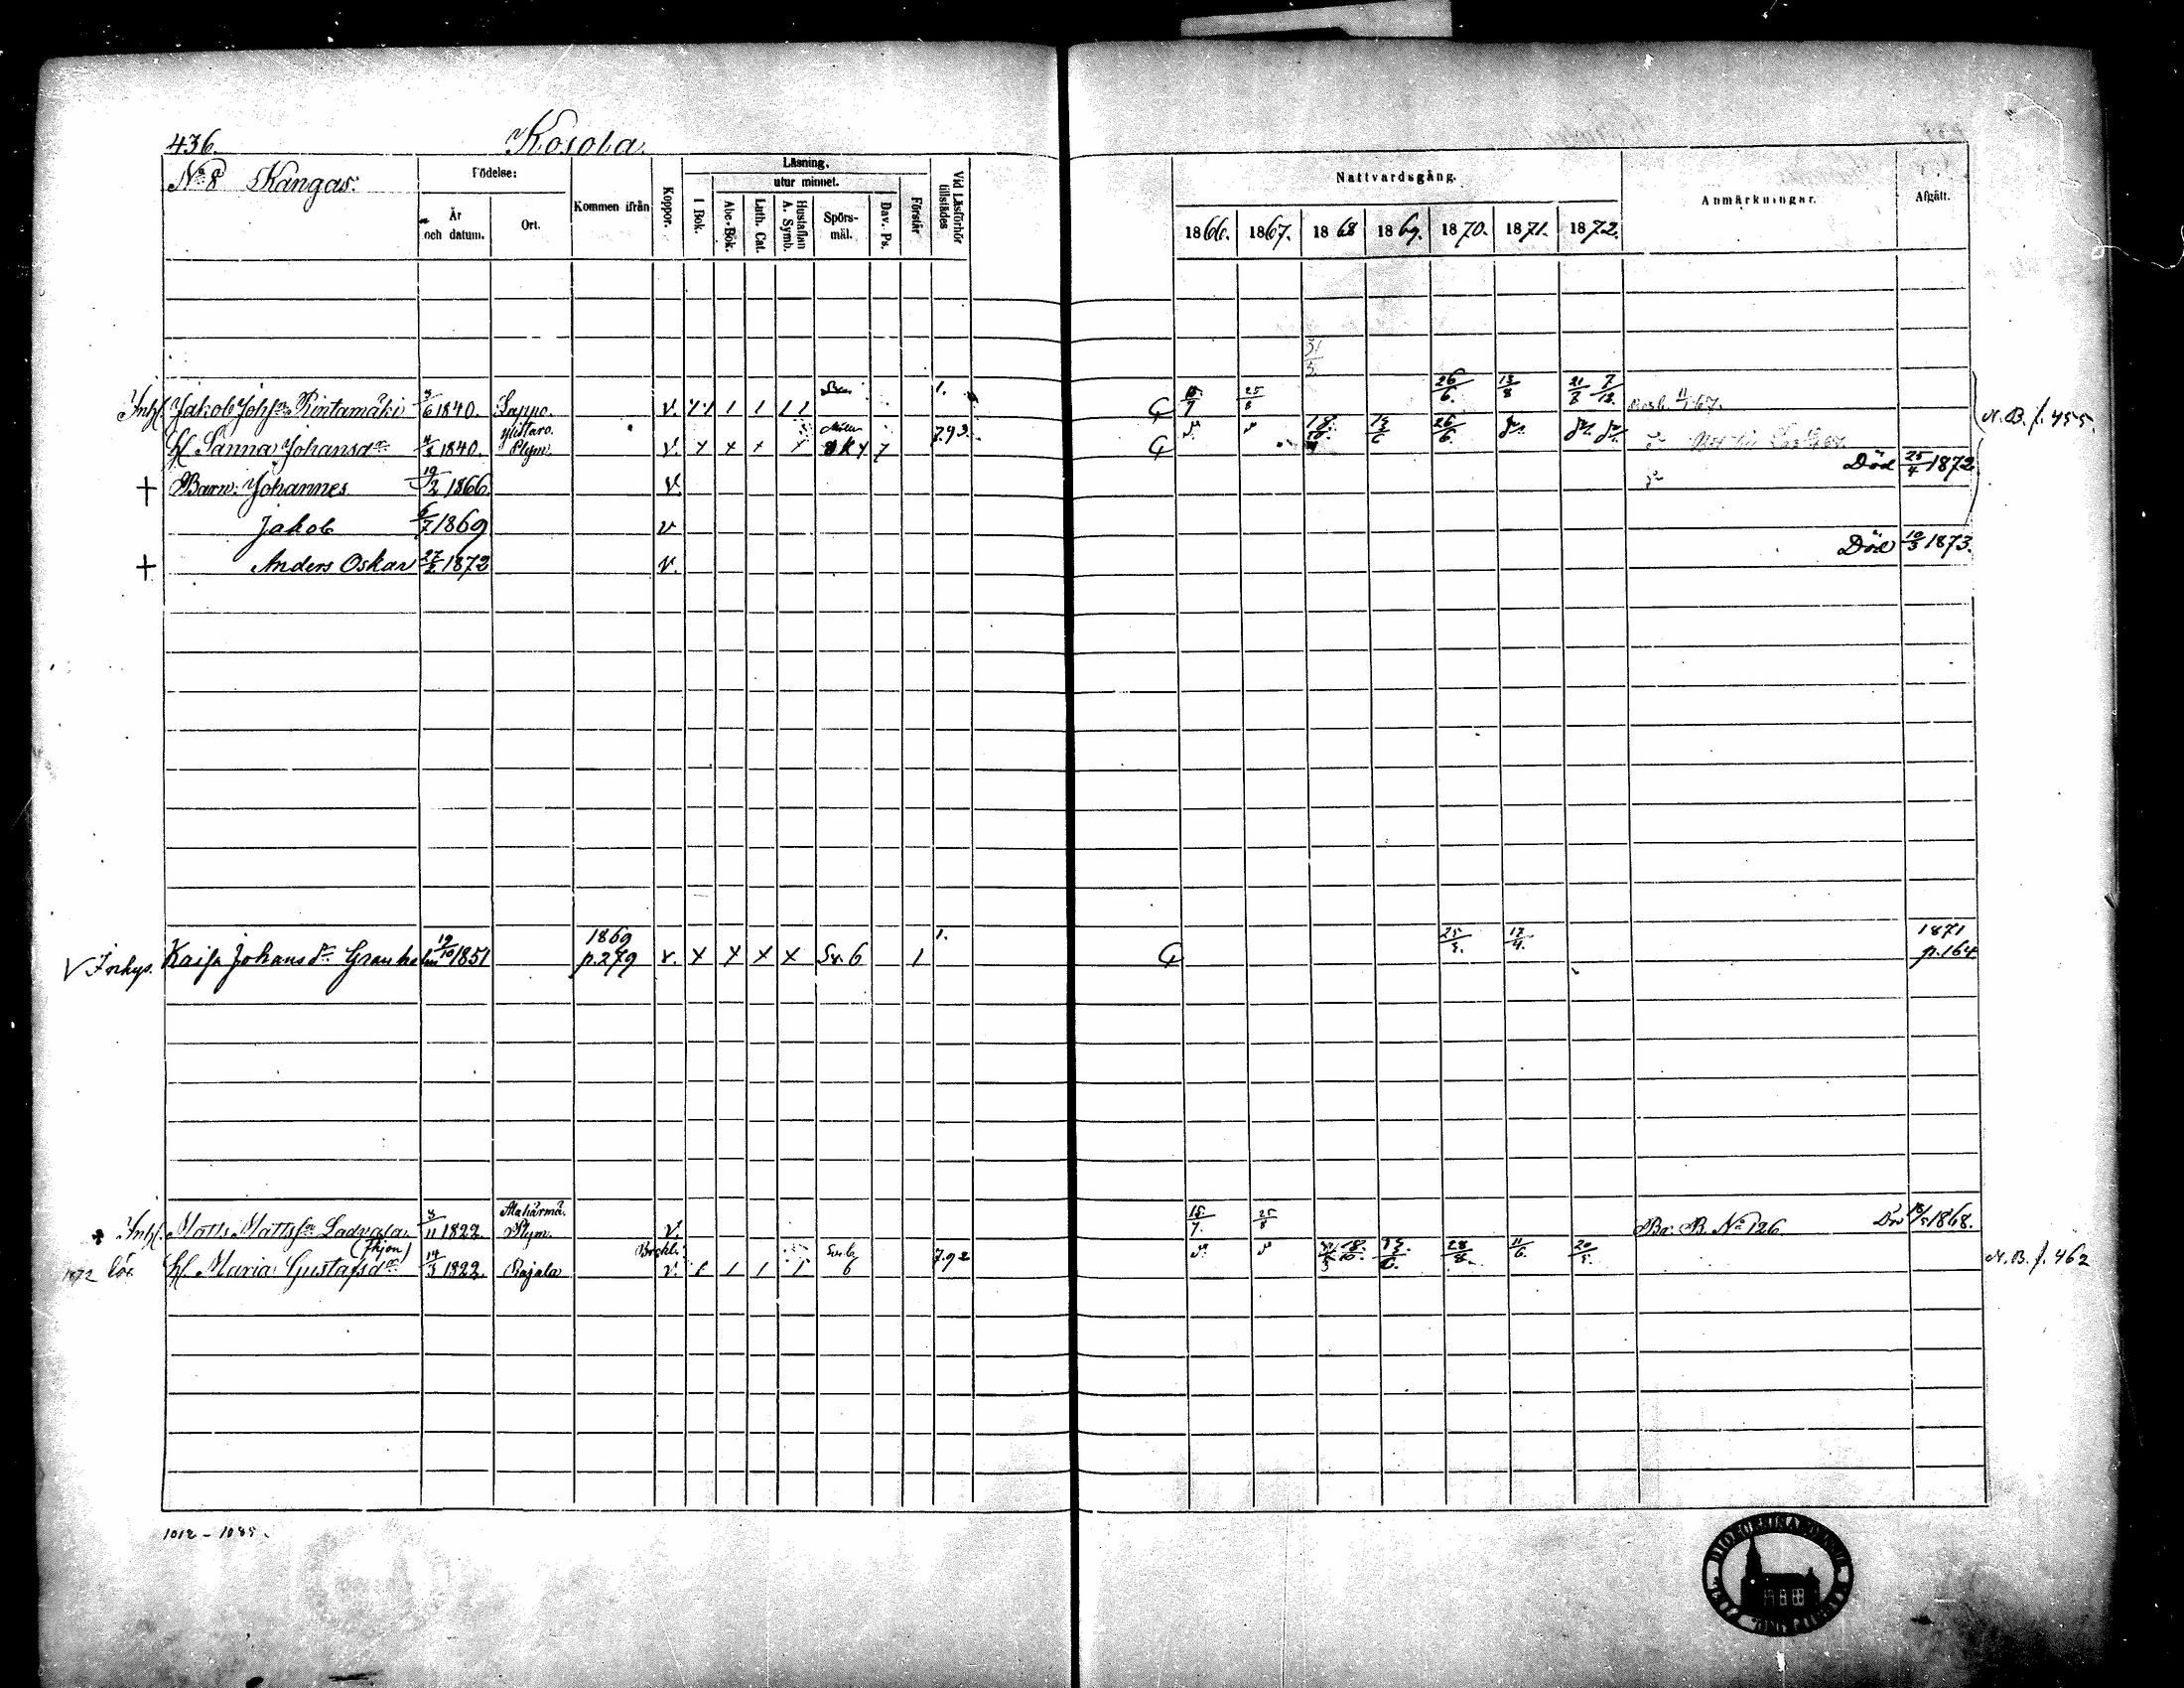 436. Kosola.
No 8 Kangas:
Födelse:
År och datum.
Ort.
Kommen ifrån
Koppor.
Läsning.
I Bok.
utur minnet.
Abc-Bok.
Luth. Cat.
Hustaflan A. Symb.
Spörsmål.
Dav. Ps.
Förstår
Vid Läsförhör tillstädes
Nattvardsgång.
1866. 1867. 1868 1869. 1870. 1871. 1872.
Anmärkningar.
Afgått.
31/5
Inh. Jakob Johsn Rintamäki 3/6 1840. Lappo. v. 1. 15/7 25/8 26/6. 13/8 21/8 7/12. 11/1 67.
Hl Sanna Johansdr 4/5 1840. Ylistaro. Plym. v. 7.93. 18/10. 13/6 26/6
N.B. f. 455.
+ Barn: Johannes 19/2 1866. v. Död 25/4 1872.
Jakob 6/7 1869 v
+ Anders Oskar 27/2 1872 v. Död 10/3 1873.
V Inhys. Kaisa Johansdr Granholm 19/10 1851 1869 p.279 v. x x x x Sv. 6 1 1. 25/3. 17/4. 1871 p.164
Inh. Matts Mattssn Ladvala. 3/11 1822. Alahärmä. Plym. v. 15/7. 25/8 Br. B. No 126. Död 18/5 1868.
1872 Lös. Hl Maria Gustafsdr 14/3 1822. Rajala v. 1 1 1 1 6 7.92 18/10. 13/6. 28/8. 11/6. 20/5. N.B. f. 462
1012 - 1085.